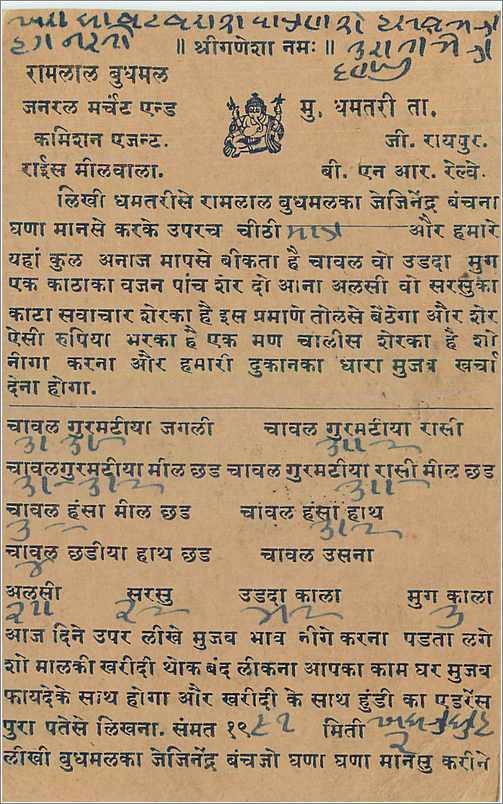 ॥ श्रीगणेशा नमः ॥
रामलाल बुधमल
जनरल मर्चंट एन्ड
मु. धमतरी ता.
कमिशन एजन्ट.
जी. रायपुर.
राईस मीलवाला.
बी. एन आर. रेल्वे.
लिखी धमतरीसे रामलाल बुधमलका जेजिनेंद्र बंचना
घणा मानसे करके उपरच चीठी और हमारे
यहां कुल अनाज मापसे बीकता है चावल वो उडदा मुग
एक काठाका वजन पांच शेर दो आना अलसी वो सरसुका
काटा सवाचार शेरका है इस प्रमाणे तोलसे बेठेगा और शेर
ऐसी रुपिया भरका है एक मण चालीस शेरका है शो
नीगा करना और हमारी दुकानका धारा मुजब खर्चा
देना होगा.
चावल गुरमटीया जगली चावल गुरमटीया रासी
चावलगुरमटीया मील छड चावल गुरमटीया रासी मील छड
चावल हंसा मील छड चावल हंसा हाथ
चावल छडीया हाथ छड चावल उसना
अलसी सरसु उडदा काला मुग काला
आज दिने उपर लीखे मुजब भाव नीगे करना पडता लगे
शो मालकी खरीदी थोक बंद लीकना आपका काम घर मुजब
फायदेके साथ होगा और खरीदी के साथ हुंडी का एडरेंस
पुरा पतेसे लिखना. संमत १९ मिती
लीखी बुधमलका जेजिनेंद्र बंचजो घणा घणा मानसु करीने